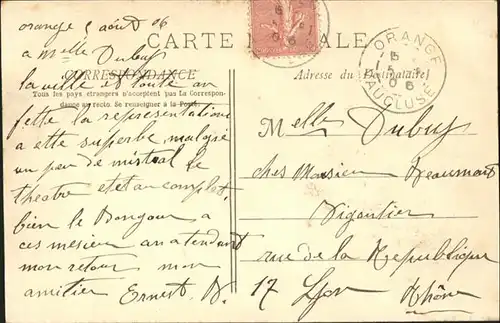 orange 5 août 06
CARTE POSTALE
a Melle Dubuy
CORRESPONDANCE
Tous les pays étrangers n'acceptent pas la Correspon-
dance au recto. Se renseigner à la Poste.
la ville et toute en
fette la representation
a ette superbe malgré
un peu de mistral le
theatre etet au complet,
bien le Bonjour a
ces mesieu en atendant
mon retour mon
amitier Ernest D.
Adresse du Destinataire
ORANGE
VAUCLUSE
Melle Dubuy
ches Monsieur
Beaumont
rue de la Republique
17 Lyon
Rhône